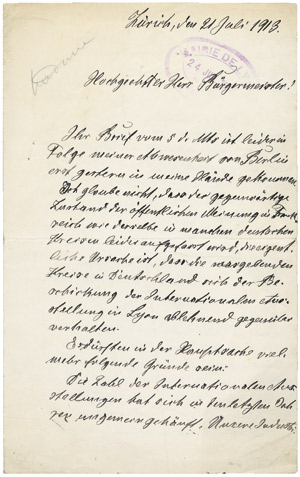 Zürich, den 21 Juli 1913.
MAIRIE DE
24 JUIL
Hochgeehrter Herr Bürgermeister!
Ihr Brief vom 5 d. Mts ist leider in
Folge meiner Abwesenheit von Berlin
erst gestern in meine Hände gekommen.
Ich glaube nicht, dass der gegenwärtige
Zustand der öffentlichen Meinung in Frank-
reich wie derselbe in manchen deutschen
Kreisen leider aufgefasst wird, die eigent-
liche Ursache ist, dass die massgebenden
Kreise in Deutschland sich der Be-
schickung der Internationalen Aus-
stellung in Lyon ablehnend gegenüber
verhalten.
Es dürften in der Hauptsache viel-
mehr folgende Gründe sein:
Die Zahl der Internationalen Aus-
stellungen hat sich in den letzten Jah-
ren ungemein gehäuft. Unsere Industri-